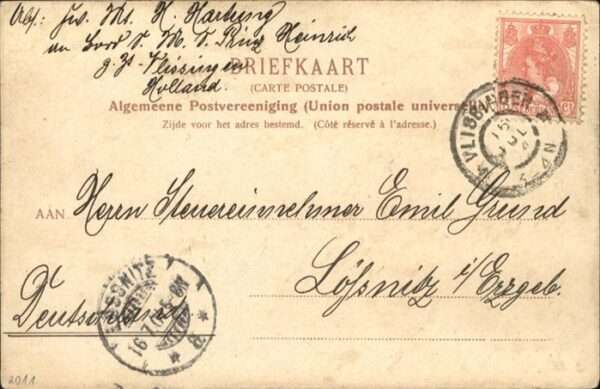 Abs: Jw. Mt. H. Hartung
an Bord S. M. S. Prinz Heinrich
z. Zt. Vlissingen
Holland.
BRIEFKAART
(CARTE POSTALE)
Algemeene Postvereeniging (Union postale universelle)
Zijde voor het adres bestemd. (Côté réservé à l'adresse.)
VLISSINGEN
15 JUL
4-
N
AAN
Herrn Steuereinnehmer Emil Grund
Lößnitz i/Erzgeb.
Deutschland
LOESSNITZ
16.7.
8
2011